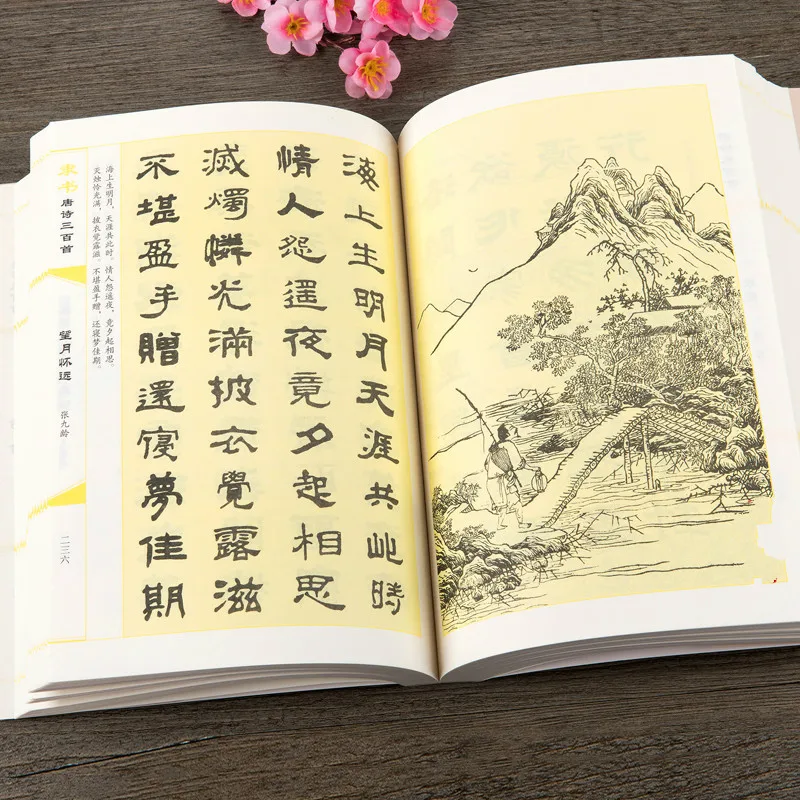 海上生明月天涯共此時
情人怨遥夜竟夕起相思
滅燭憐光滿披衣覺露滋
不堪盈手贈還寢夢佳期
海上生明月，天涯共此时。情人怨遥夜，竟夕起相思。
灭烛怜光满，披衣觉露滋。不堪盈手赠，还寝梦佳期。
隶书 唐诗三百首
望月怀远
张九龄
二三六